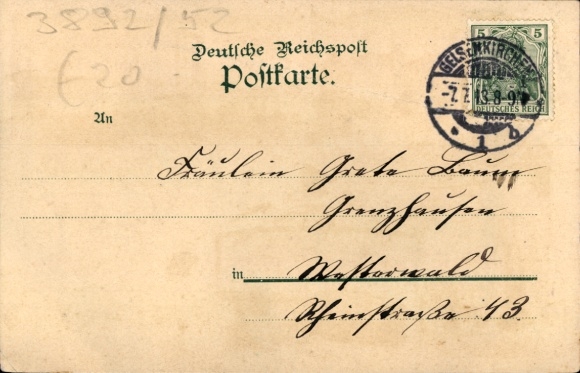 3892/52
€20
Deutsche Reichspost
Postkarte.
5 5
DEUTSCHES REICH
GELSENKIRCHEN
-7.7.13.8-9
* 1 b
An
Fräulein Grete Baum
Grenzhausen
in Westerwald
Rheinstraße 43.